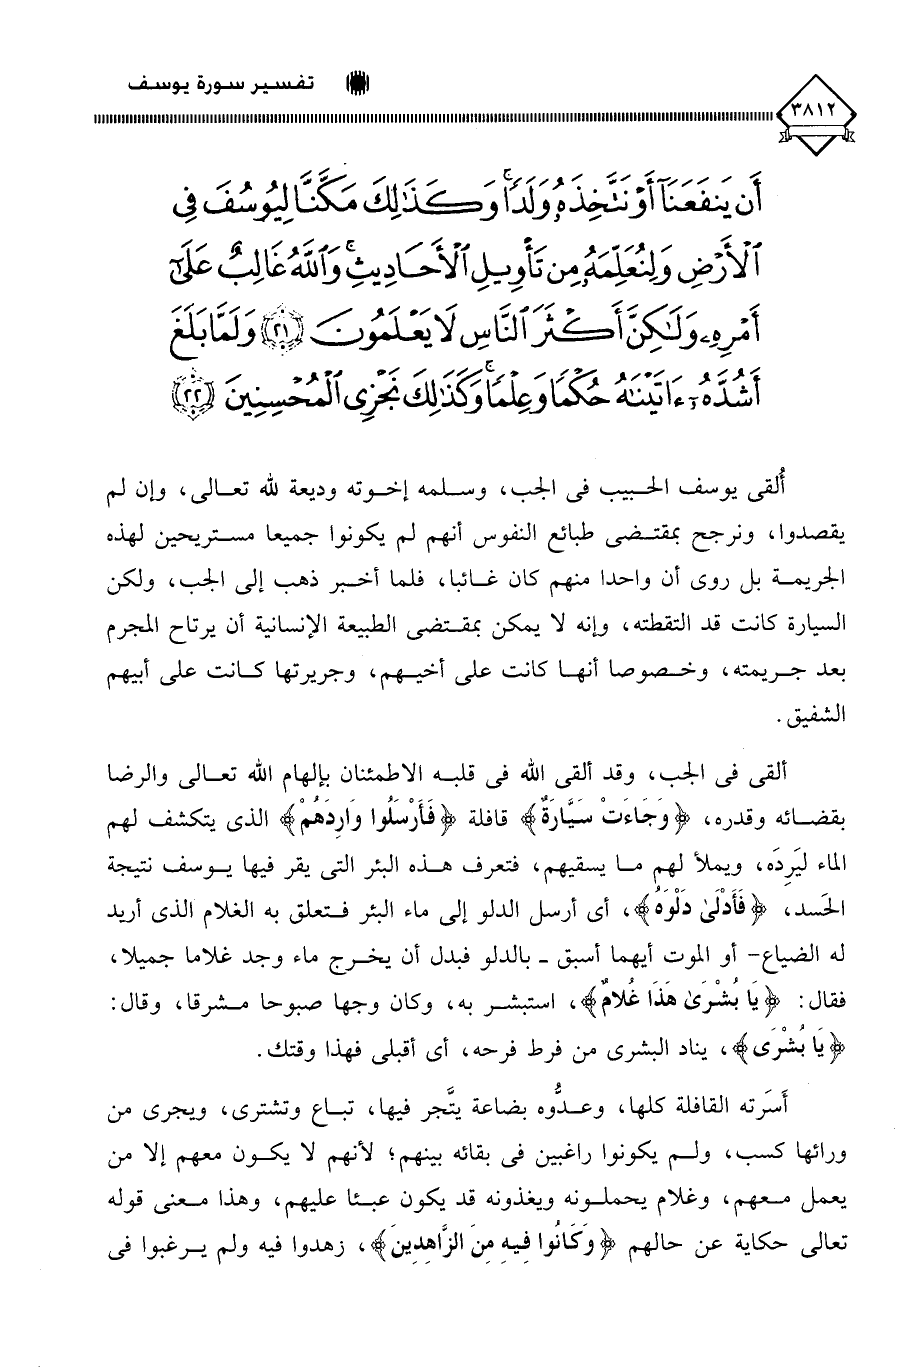 تفسير سورة يوسف
٣٨١٢
أَن يَنفَعَنَآ أَوْ نَتَّخِذَهُۥ وَلَدًا ۚ وَكَذَٰلِكَ مَكَّنَّا لِيُوسُفَ فِى
ٱلْأَرْضِ وَلِنُعَلِّمَهُۥ مِن تَأْوِيلِ ٱلْأَحَادِيثِ ۚ وَٱللَّهُ غَالِبٌ عَلَىٰٓ
أَمْرِهِۦ وَلَٰكِنَّ أَكْثَرَ ٱلنَّاسِ لَا يَعْلَمُونَ ﴿٢١﴾ وَلَمَّا بَلَغَ
أَشُدَّهُۥٓ ءَاتَيْنَٰهُ حُكْمًا وَعِلْمًا ۚ وَكَذَٰلِكَ نَجْزِى ٱلْمُحْسِنِينَ ﴿٢٢﴾
أُلقى يوسف الحبيب فى الجب، وسلمه إخوته وديعة لله تعالى، وإن لم
يقصدوا، ونرجح بمقتضى طبائع النفوس أنهم لم يكونوا جميعا مستريحين لهذه
الجريمة بل روى أن واحدا منهم كان غائبا، فلما أخبر ذهب إلى الجب، ولكن
السيارة كانت قد التقطته، وإنه لا يمكن بمقتضى الطبيعة الإنسانية أن يرتاح المجرم
بعد جريمته، وخصوصا أنها كانت على أخيهم، وجريرتها كانت على أبيهم
الشفيق.
ألقى فى الجب، وقد ألقى الله فى قلبه الاطمئنان بإلهام الله تعالى والرضا
بقضائه وقدره، ﴿وَجَاءَتْ سَيَّارَةٌ﴾ قافلة ﴿فَأَرْسَلُوا وَارِدَهُمْ﴾ الذى يتكشف لهم
الماء ليَرِدَه، ويملأ لهم ما يسقيهم، فتعرف هذه البئر التى يقر فيها يوسف نتيجة
الحسد، ﴿فَأَدْلَىٰ دَلْوَهُ﴾، أى أرسل الدلو إلى ماء البئر فتعلق به الغلام الذى أريد
له الضياع- أو الموت أيهما أسبق - بالدلو فبدل أن يخرج ماء وجد غلاما جميلا،
فقال: ﴿يَا بُشْرَىٰ هَذَا غُلَامٌ﴾، استبشر به، وكان وجها صبوحا مشرقا، وقال:
﴿يَا بُشْرَى﴾، يناد البشرى من فرط فرحه، أى أقبلى فهذا وقتك.
أسَرته القافلة كلها، وعدُّوه بضاعة يتَّجر فيها، تباع وتشترى، ويجرى من
ورائها كسب، ولم يكونوا راغبين فى بقائه بينهم؛ لأنهم لا يكون معهم إلا من
يعمل معهم، وغلام يحملونه ويغذونه قد يكون عبئا عليهم، وهذا معنى قوله
تعالى حكاية عن حالهم ﴿وَكَانُوا فِيهِ مِنَ الزَّاهِدِينَ﴾، زهدوا فيه ولم يرغبوا فى